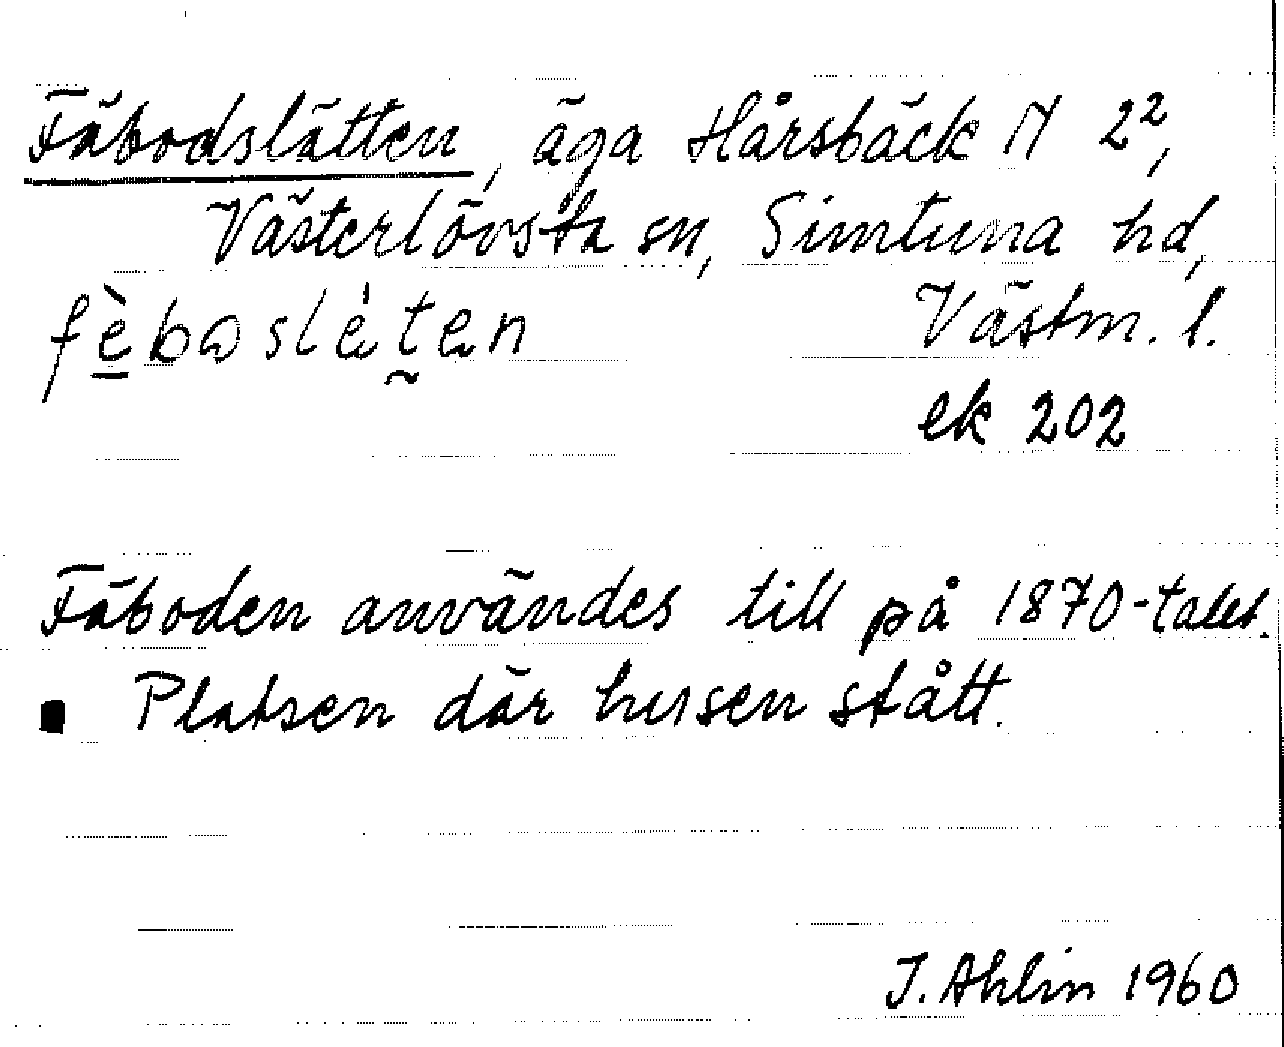 Fäbodslätten, äga Hårsbäck N 2²,
Västerlövsta sn, Simtuna hd,
fèbɷslèten Västm. l.
ek 202
Fäboden användes till på 1870-talet.
Platsen där husen stått.
J. Ahlin 1960